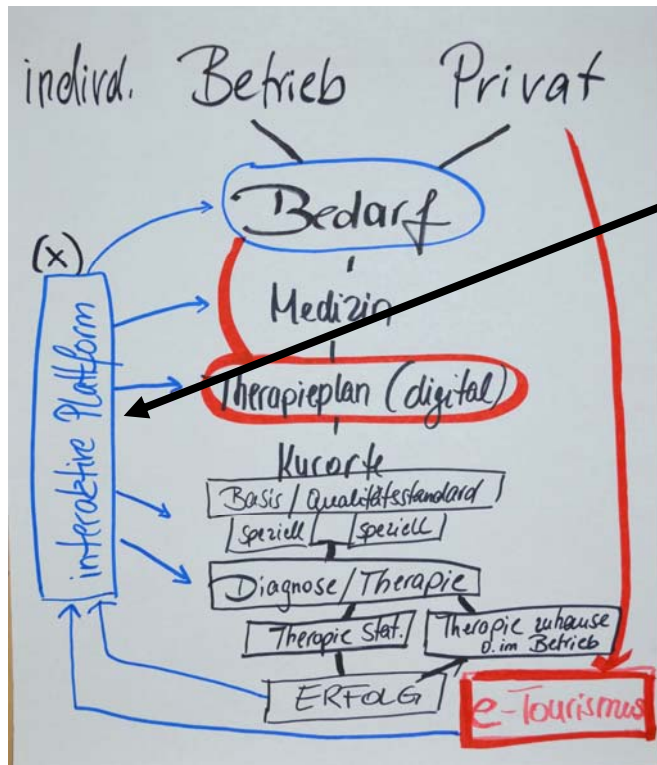 individ. Betrieb Privat
Bedarf
(x)
Medizin
interaktive Platform
Therapieplan (digital)
Kurorte
Basis / Qualitätsstandard
speziell speziell
Diagnose/Therapie
Therapie Stat.
Therapie zuhause
o. im Betrieb
ERFOLG
e-Tourismus